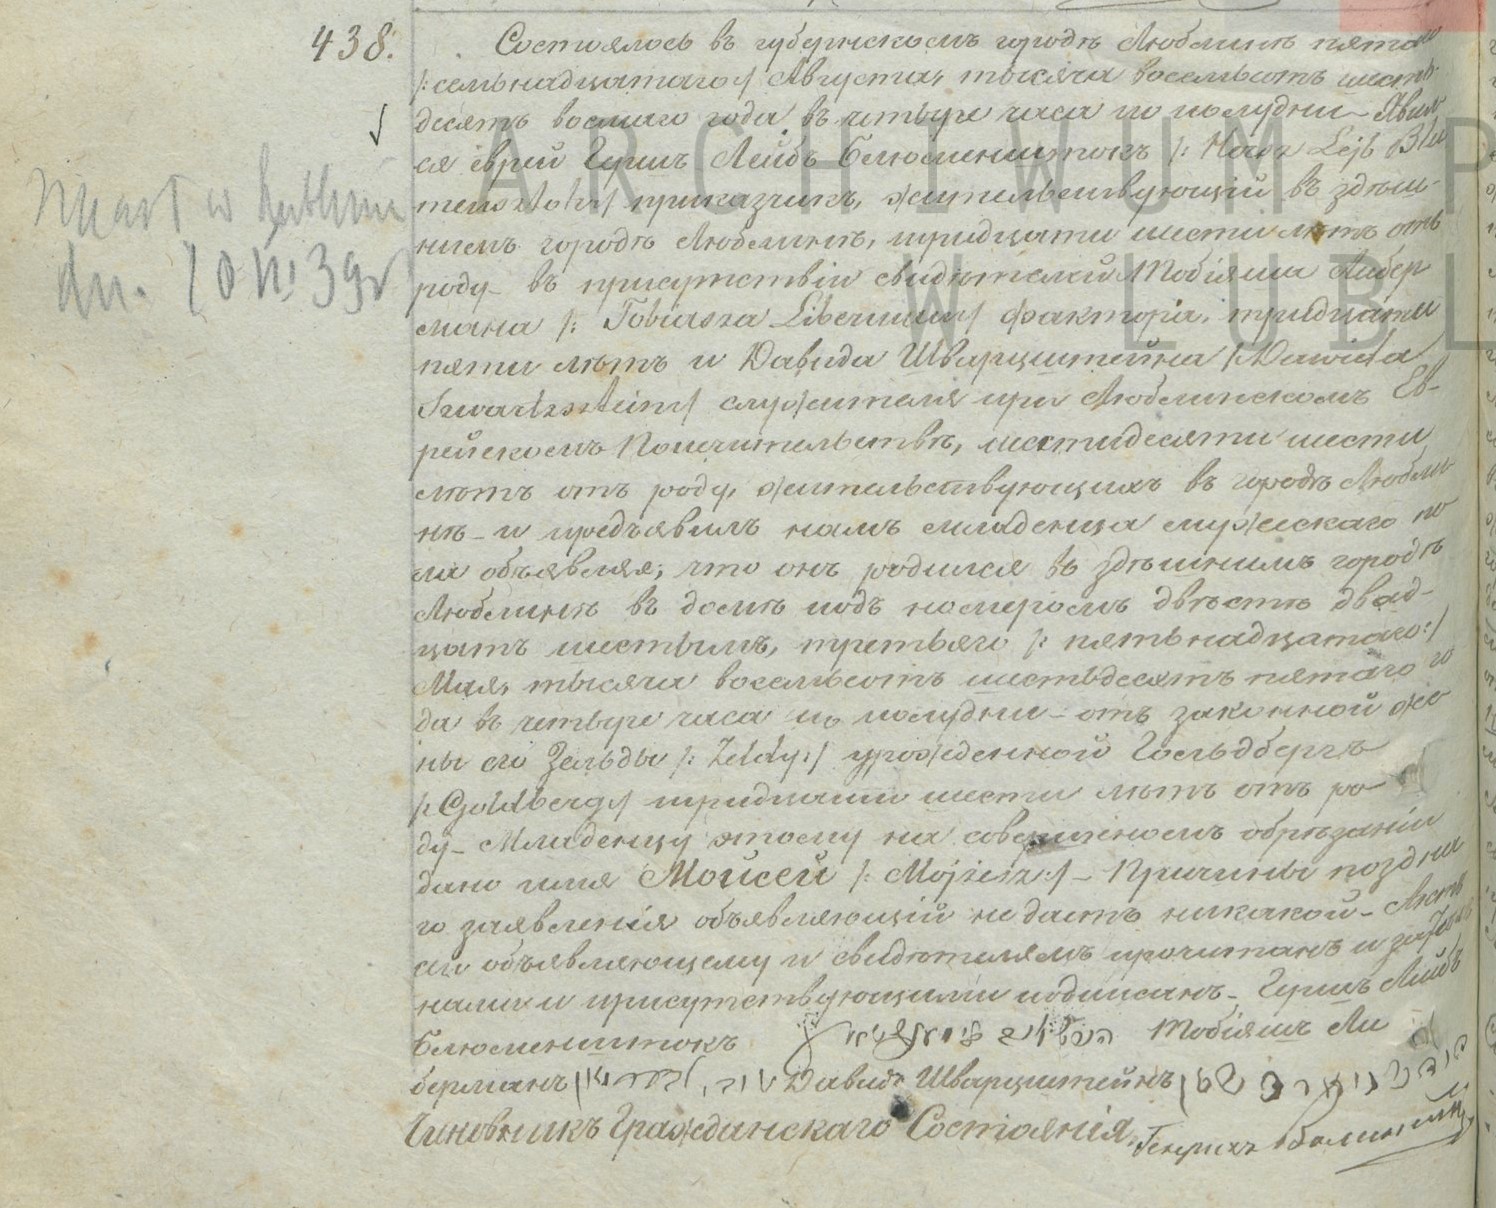 438.
Состоялось въ губернскомъ городѣ Люблинѣ пятаго
/:семьнадцатаго:/ Августа, тысяча восемьсотъ шесть-
десятъ восмаго года въ четыре часа по полудни – Явил
ся еврей Гершъ Лейбъ Блюменштокъ /: Hersz Lejb Blu
mensztok:/ приказчикъ, жительствующій въ здѣш-
нимъ городѣ Люблинѣ, тридцати шести лѣтъ отъ
роду – въ присутствіи свидѣтелей Тобіяша Либер
мана /: Tobiasza Libermana:/ фактора, тридцати
пяти лѣтъ и Давида Шварцштейна /:Dawida
Szwartzsztein:/ служителя при Люблинскомъ Ев-
рейскомъ Попечительствѣ, шестидесяти шести
лѣтъ отъ роду, жительствующихъ въ городѣ Любли
нѣ – и предъявилъ намъ младенца мужескаго по
ла объявляя, что онъ родился въ здѣшнимъ городѣ
Люблинѣ въ домѣ подъ номеромъ двѣстѣ двад-
цать шестымъ, третьяго /: пятьнадцатаго:/
Мая, тысяча восемьсотъ шестьдесятъ пятаго го
да въ четыре часа по полудни – отъ законной же
ны его Зельды /: Zeldy:/ урожденной Гольдбергъ
/: Goldberg:/ тридцати шести лѣтъ отъ ро
ду – Младенцу этому на совершенномъ обрѣзаніи
дано имя Мойсей /: Mojżesz:/ – Причины поздна
го заявленія объявляющій не далъ никакой – Актъ
сей объявляющему и свидѣтелямъ прочитанъ и за
нами и присутствующими подписанъ – Гершъ Лейбъ
Блюменштокъ Тобіяшъ Ли
берманъ Давидъ Шварцштейнъ
Чиновникъ Гражданскаго Состоянія Генрихъ
Zmarł w Lublinie
dn. 10 39 r
ARCHIWUM P
W LUBL